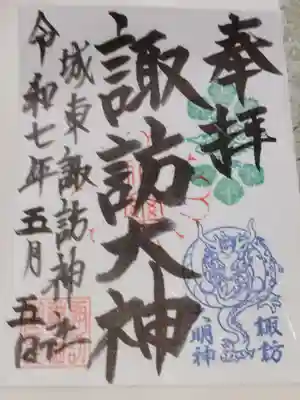 奉拝
諏訪大神
城東諏訪神社
令和七年五月五日
諏訪
明神